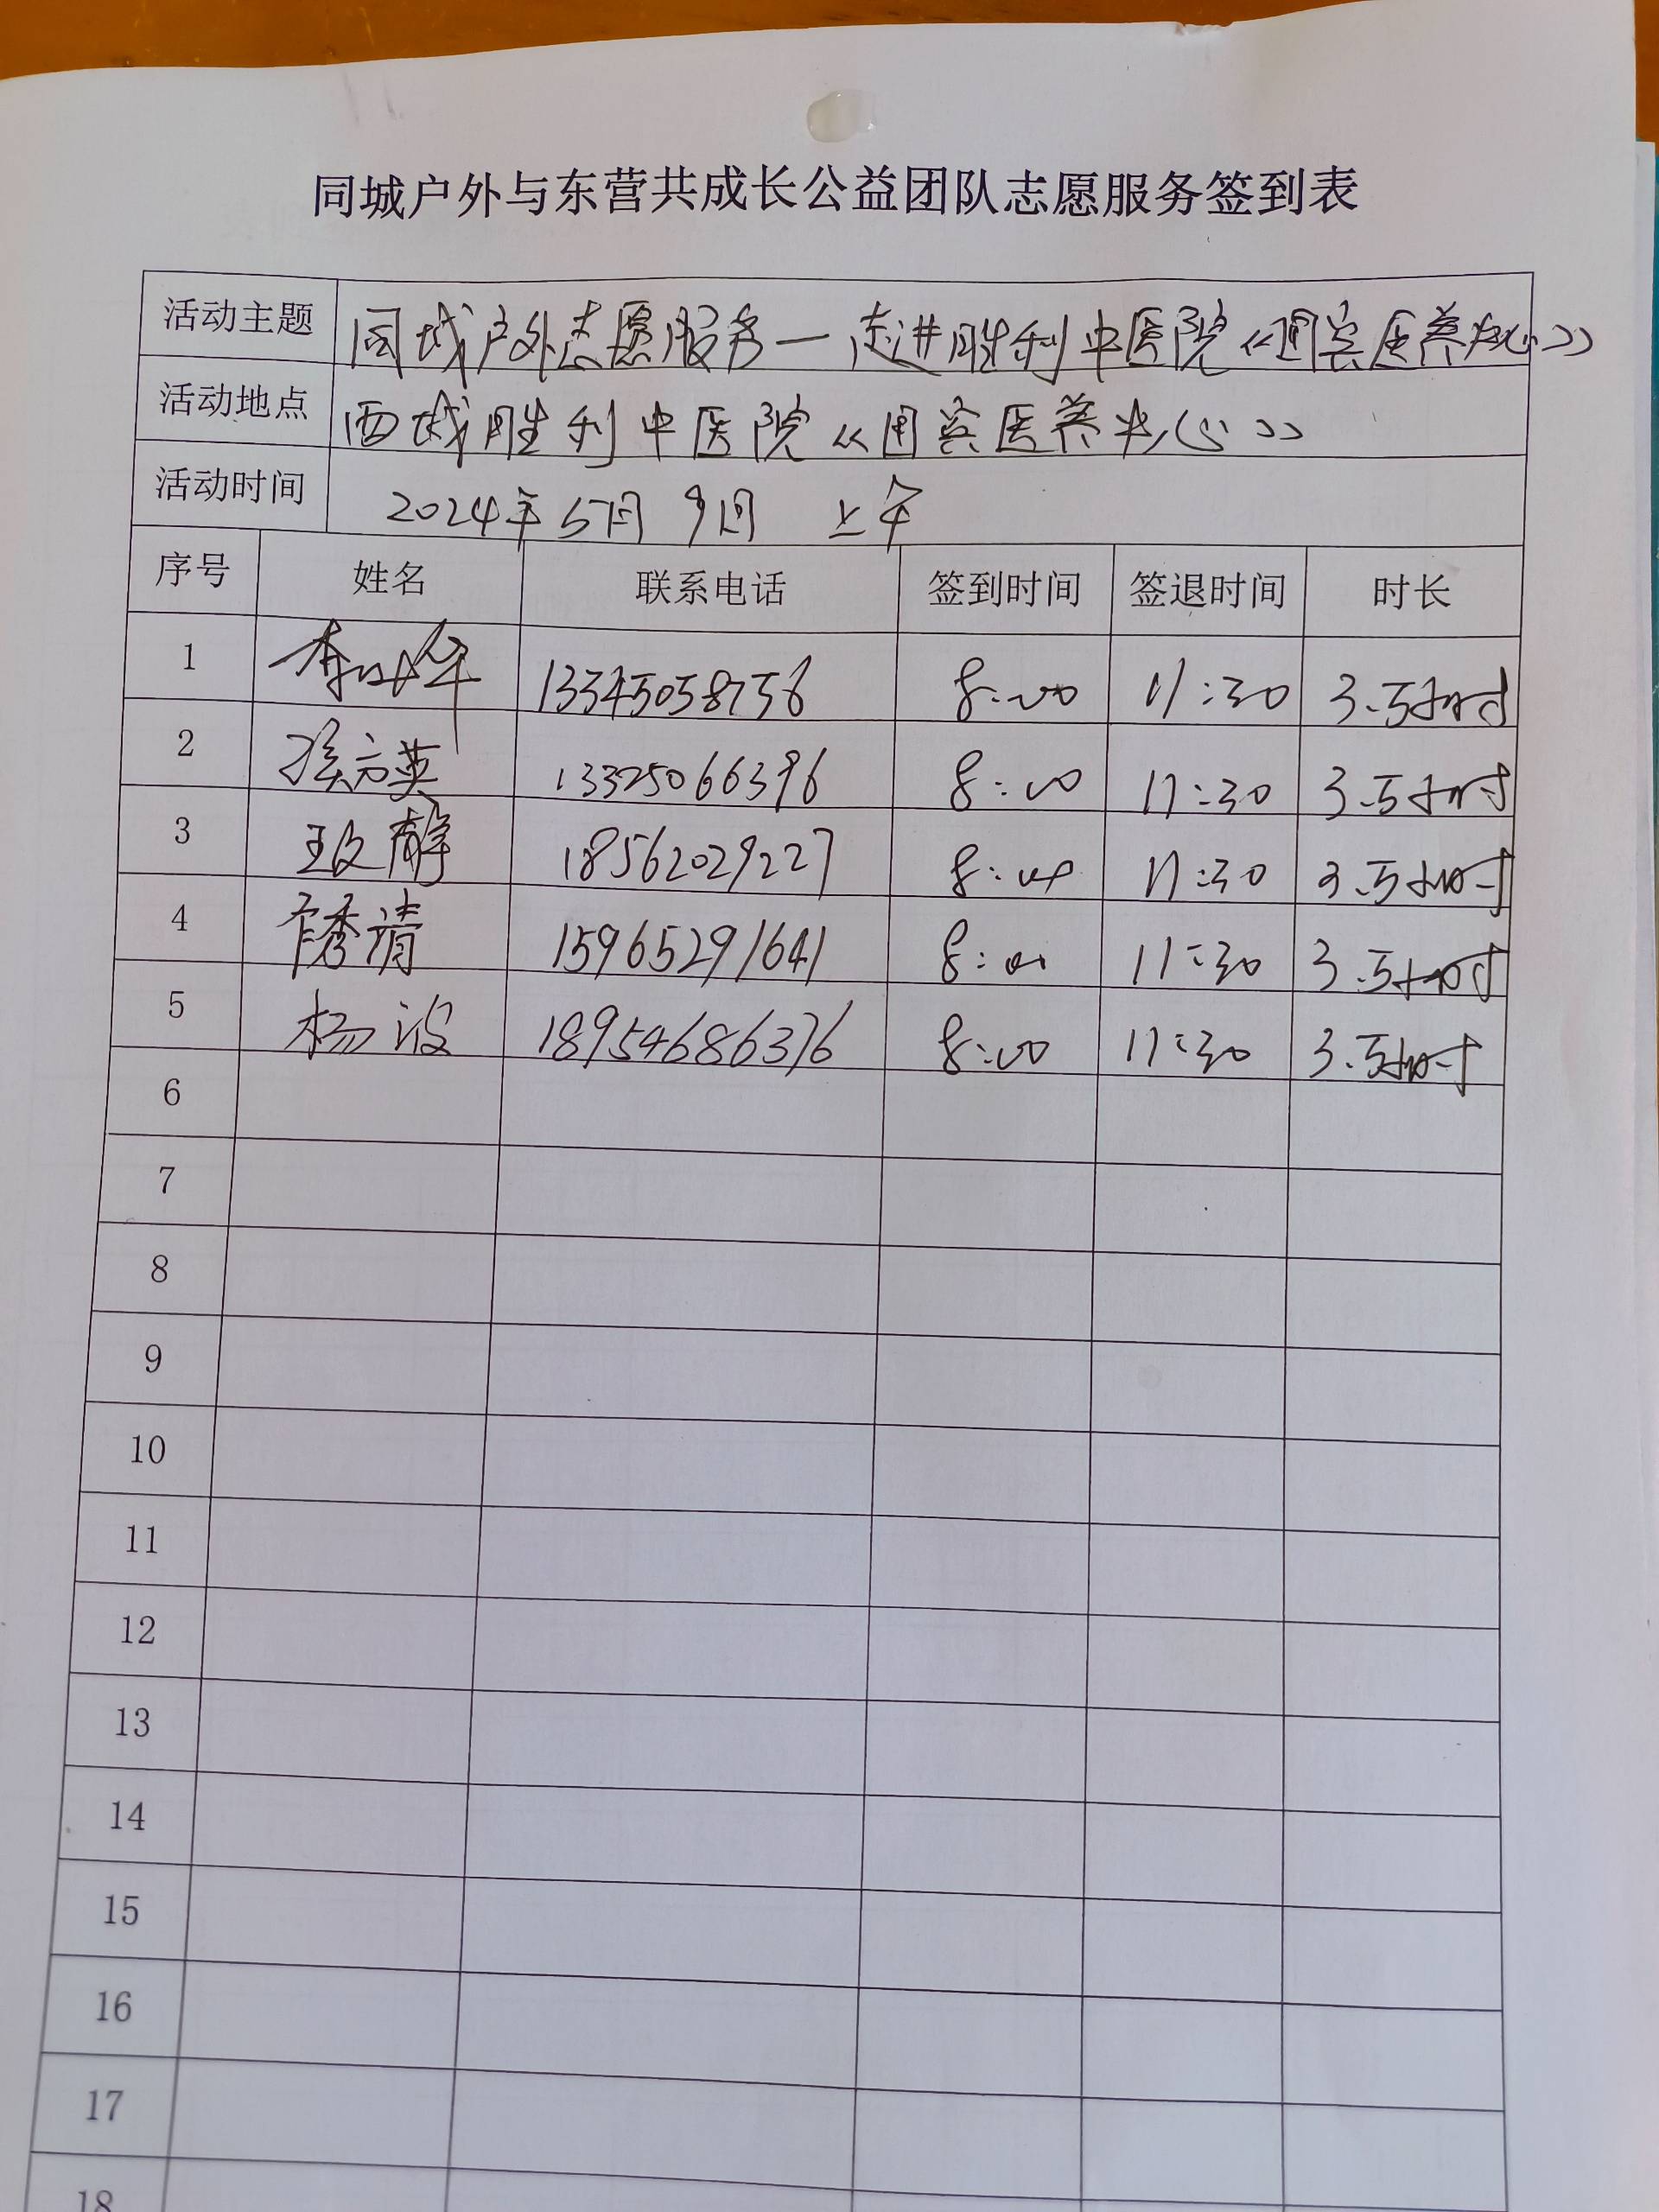 同城户外与东营共成长公益团队志愿服务签到表
活动主题 同城户外志愿服务—走进胜利中医院《国宾医养中心》
活动地点 西城胜利中医院《国宾医养中心》
活动时间 2024年5月9日 上午
序号 姓名 联系电话 签到时间 签退时间 时长
1 13345058756 8:00 11:30 3.5小时
2 13325066396 8:00 11:30 3.5小时
3 王文静 18562029227 8:00 11:30 3.5小时
4 秀清 15965291641 8:00 11:30 3.5小时
5 杨波 18954686376 8:00 11:30 3.5小时
6
7
8
9
10
11
12
13
14
15
16
17
18